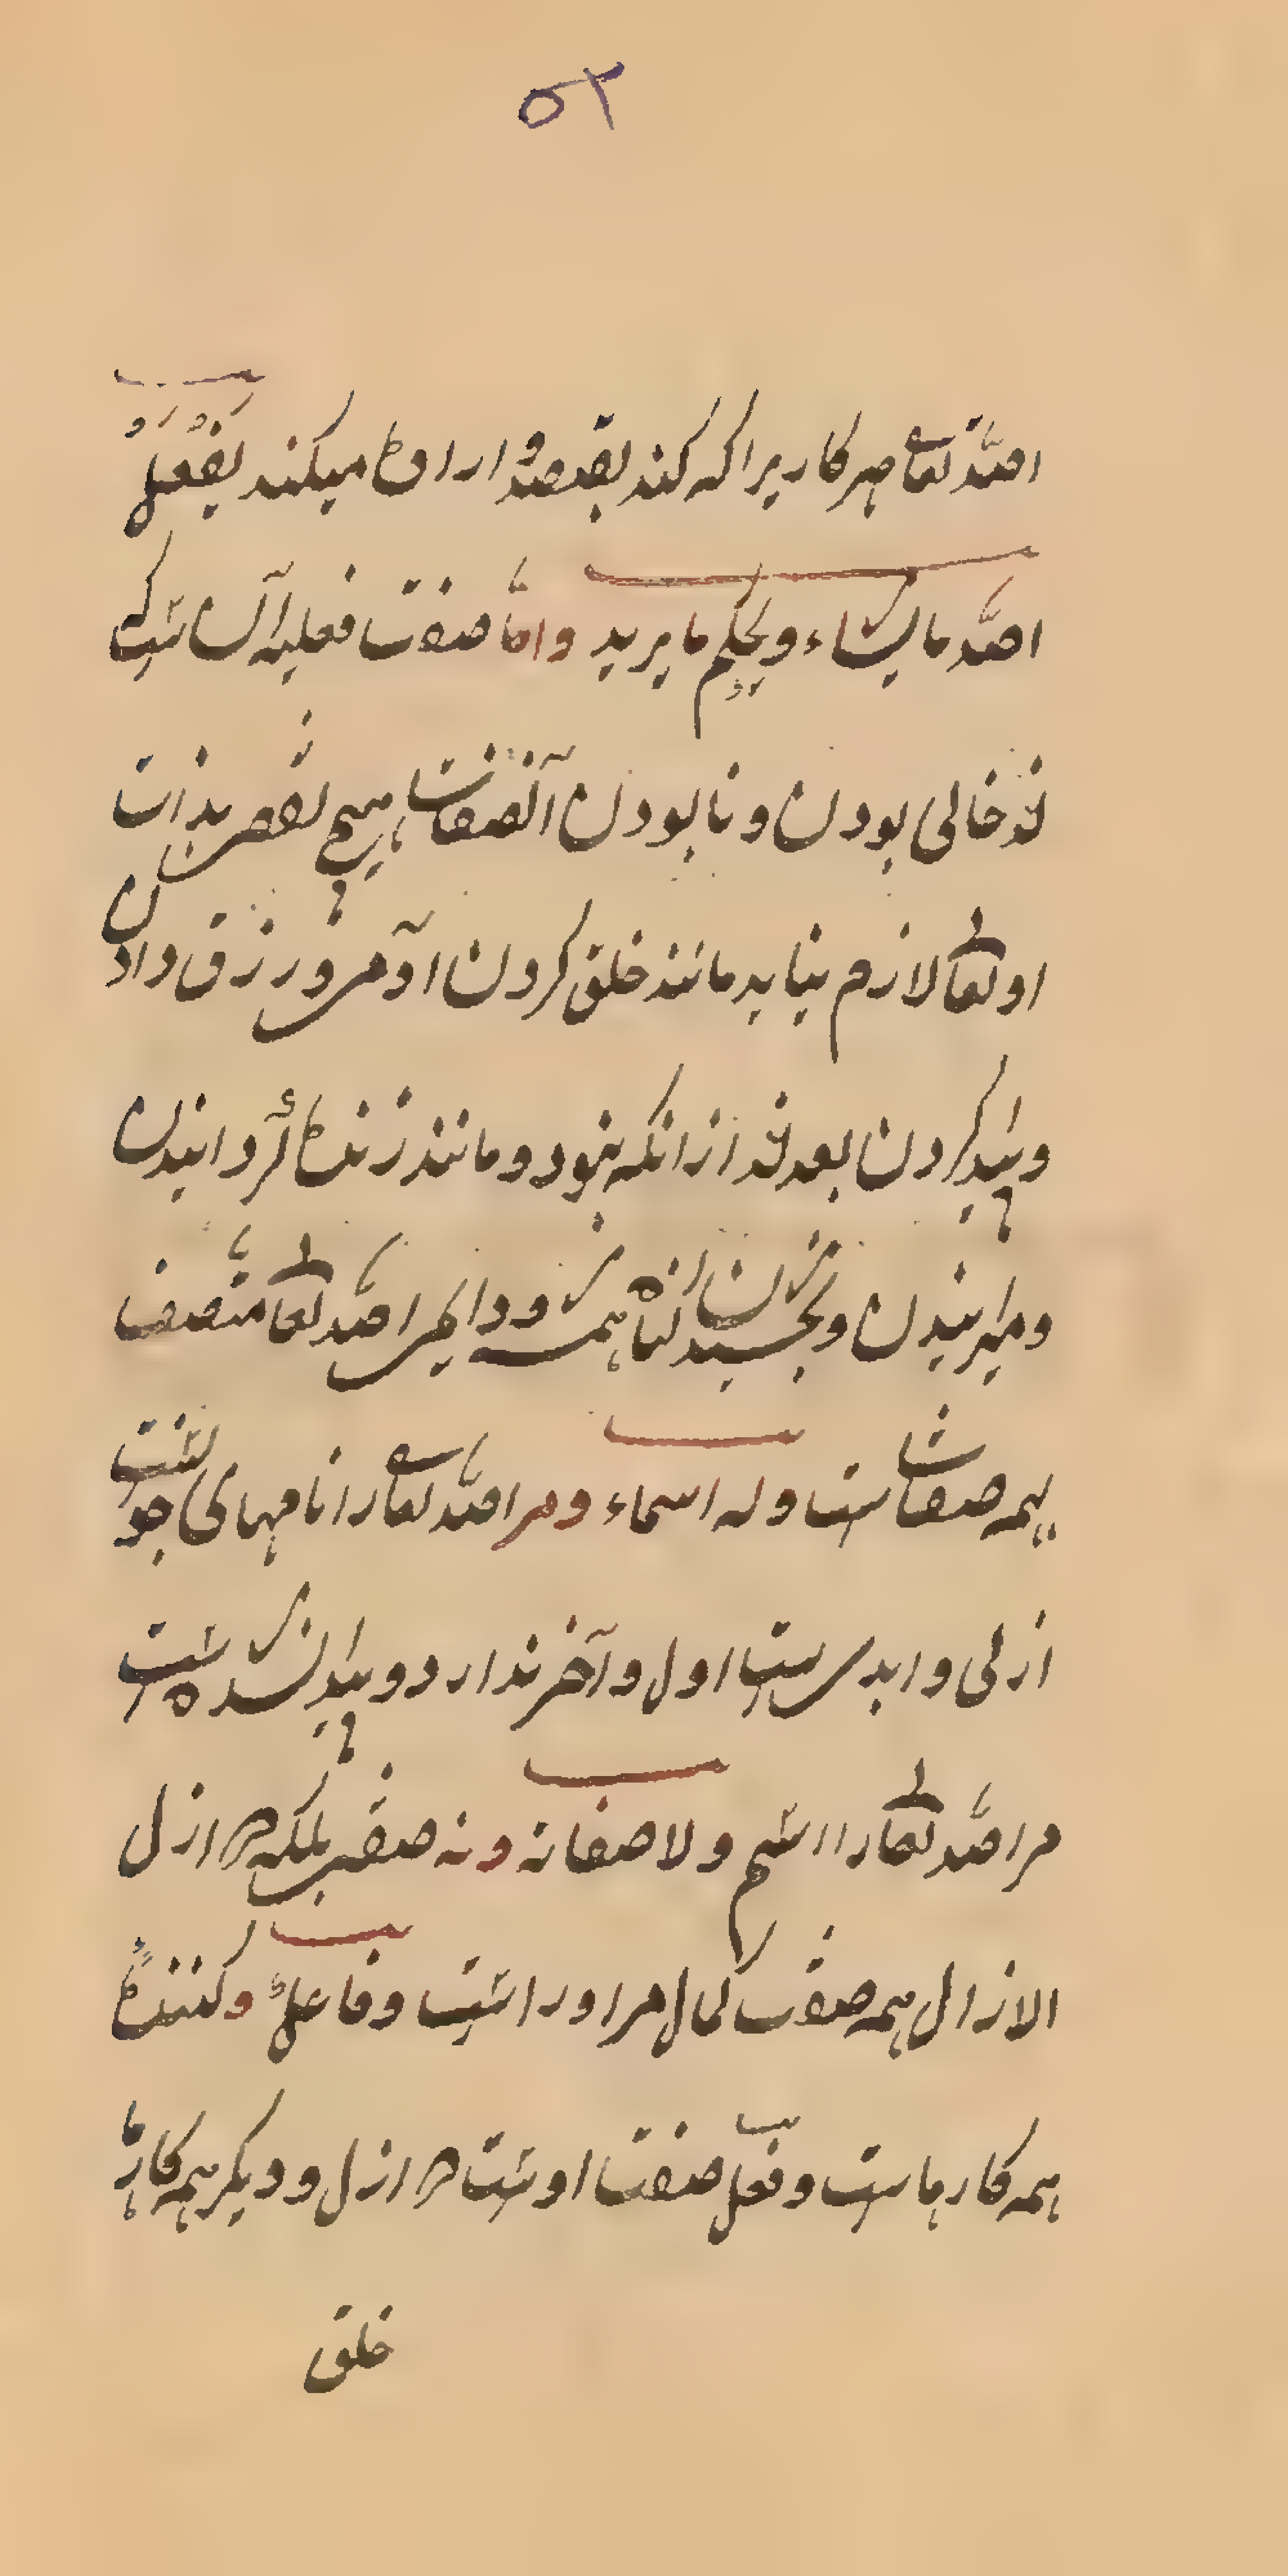 ۵۳
الله تعالی هر کاریرا که کند بقصد و اراده میکند یَفْعَلُ
الله ما یشاء و یحکم ما یرید و امّا صفت فعلیه آن است که
از خالی بودن و نابودن آنصفات هیچ نقصی بذات
او تعالی لازم نیاید مانند خلق کردن و آفرین و رزق دادن
و پیدا کردن بعد از انکه نبود و مانند زنده گردانیدن
و میرانیدن و بخشیدن گناه الله تعالی متصف
بهمه صفات است وله اسماء و مر الله تعالی را نامهای
ازلی و ابدی است اول و آخر ندارد و پیدا نشده است
مر الله تعالی را اسم ولا صفاته و نه صفت بلکه در ازل
الازال همه صفت کمال مر او را است و فاعلٌ و کننده
همه کارها است و فعل صفت اوست در ازل و دیگر همه کارها
خلق